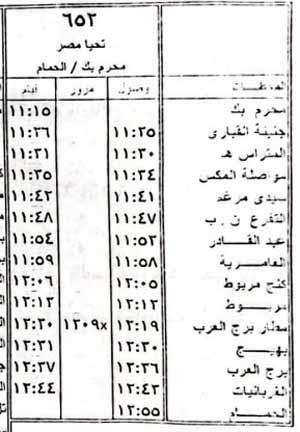 ٦٥٢
تحيا مصر
محرم بك / الحمام
المحطات وصول مرور قيام
محرم بك ١١:١٥
جنينة القبارى ١١:٢٥ ١١:٢٦
المتراس هـ ١١:٣٠ ١١:٣١
مواصلة المكس ١١:٣٤ ١١:٣٥
سيدى مرغم ١١:٤١ ١١:٤٢
التفرع ن . ب ١١:٤٧ ١١:٤٨
عبد القـــادر ١١:٥٣ ١١:٥٤
العامـــرية ١١:٥٨ ١١:٥٩
كنج مريوط ١٢:٠٥ ١٢:٠٦
مريـــوط ١٢:١٢ ١٢:١٣
مطار برج العرب ١٢:١٩ ١٢٠٩x ١٢:٢٠
بهيـــج ١٢:٣٠ ١٢:٣١
برج العرب ١٢:٣٦ ١٢:٣٧
الغربانيات ١٢:٤٣ ١٢:٤٤
الحمـــام ١٢:٥٥